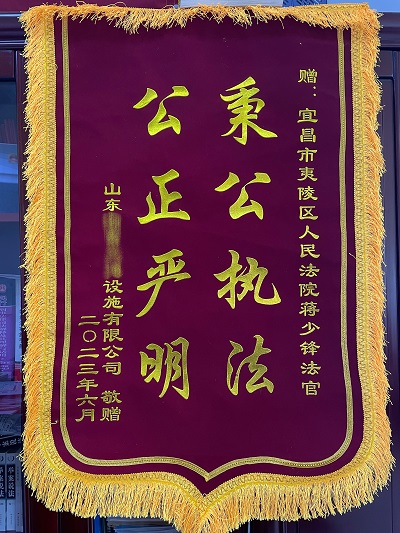 赠：宜昌市夷陵区人民法院蒋少锋法官
秉公执法
公正严明
山东 设施有限公司 敬赠
二〇二三年六月